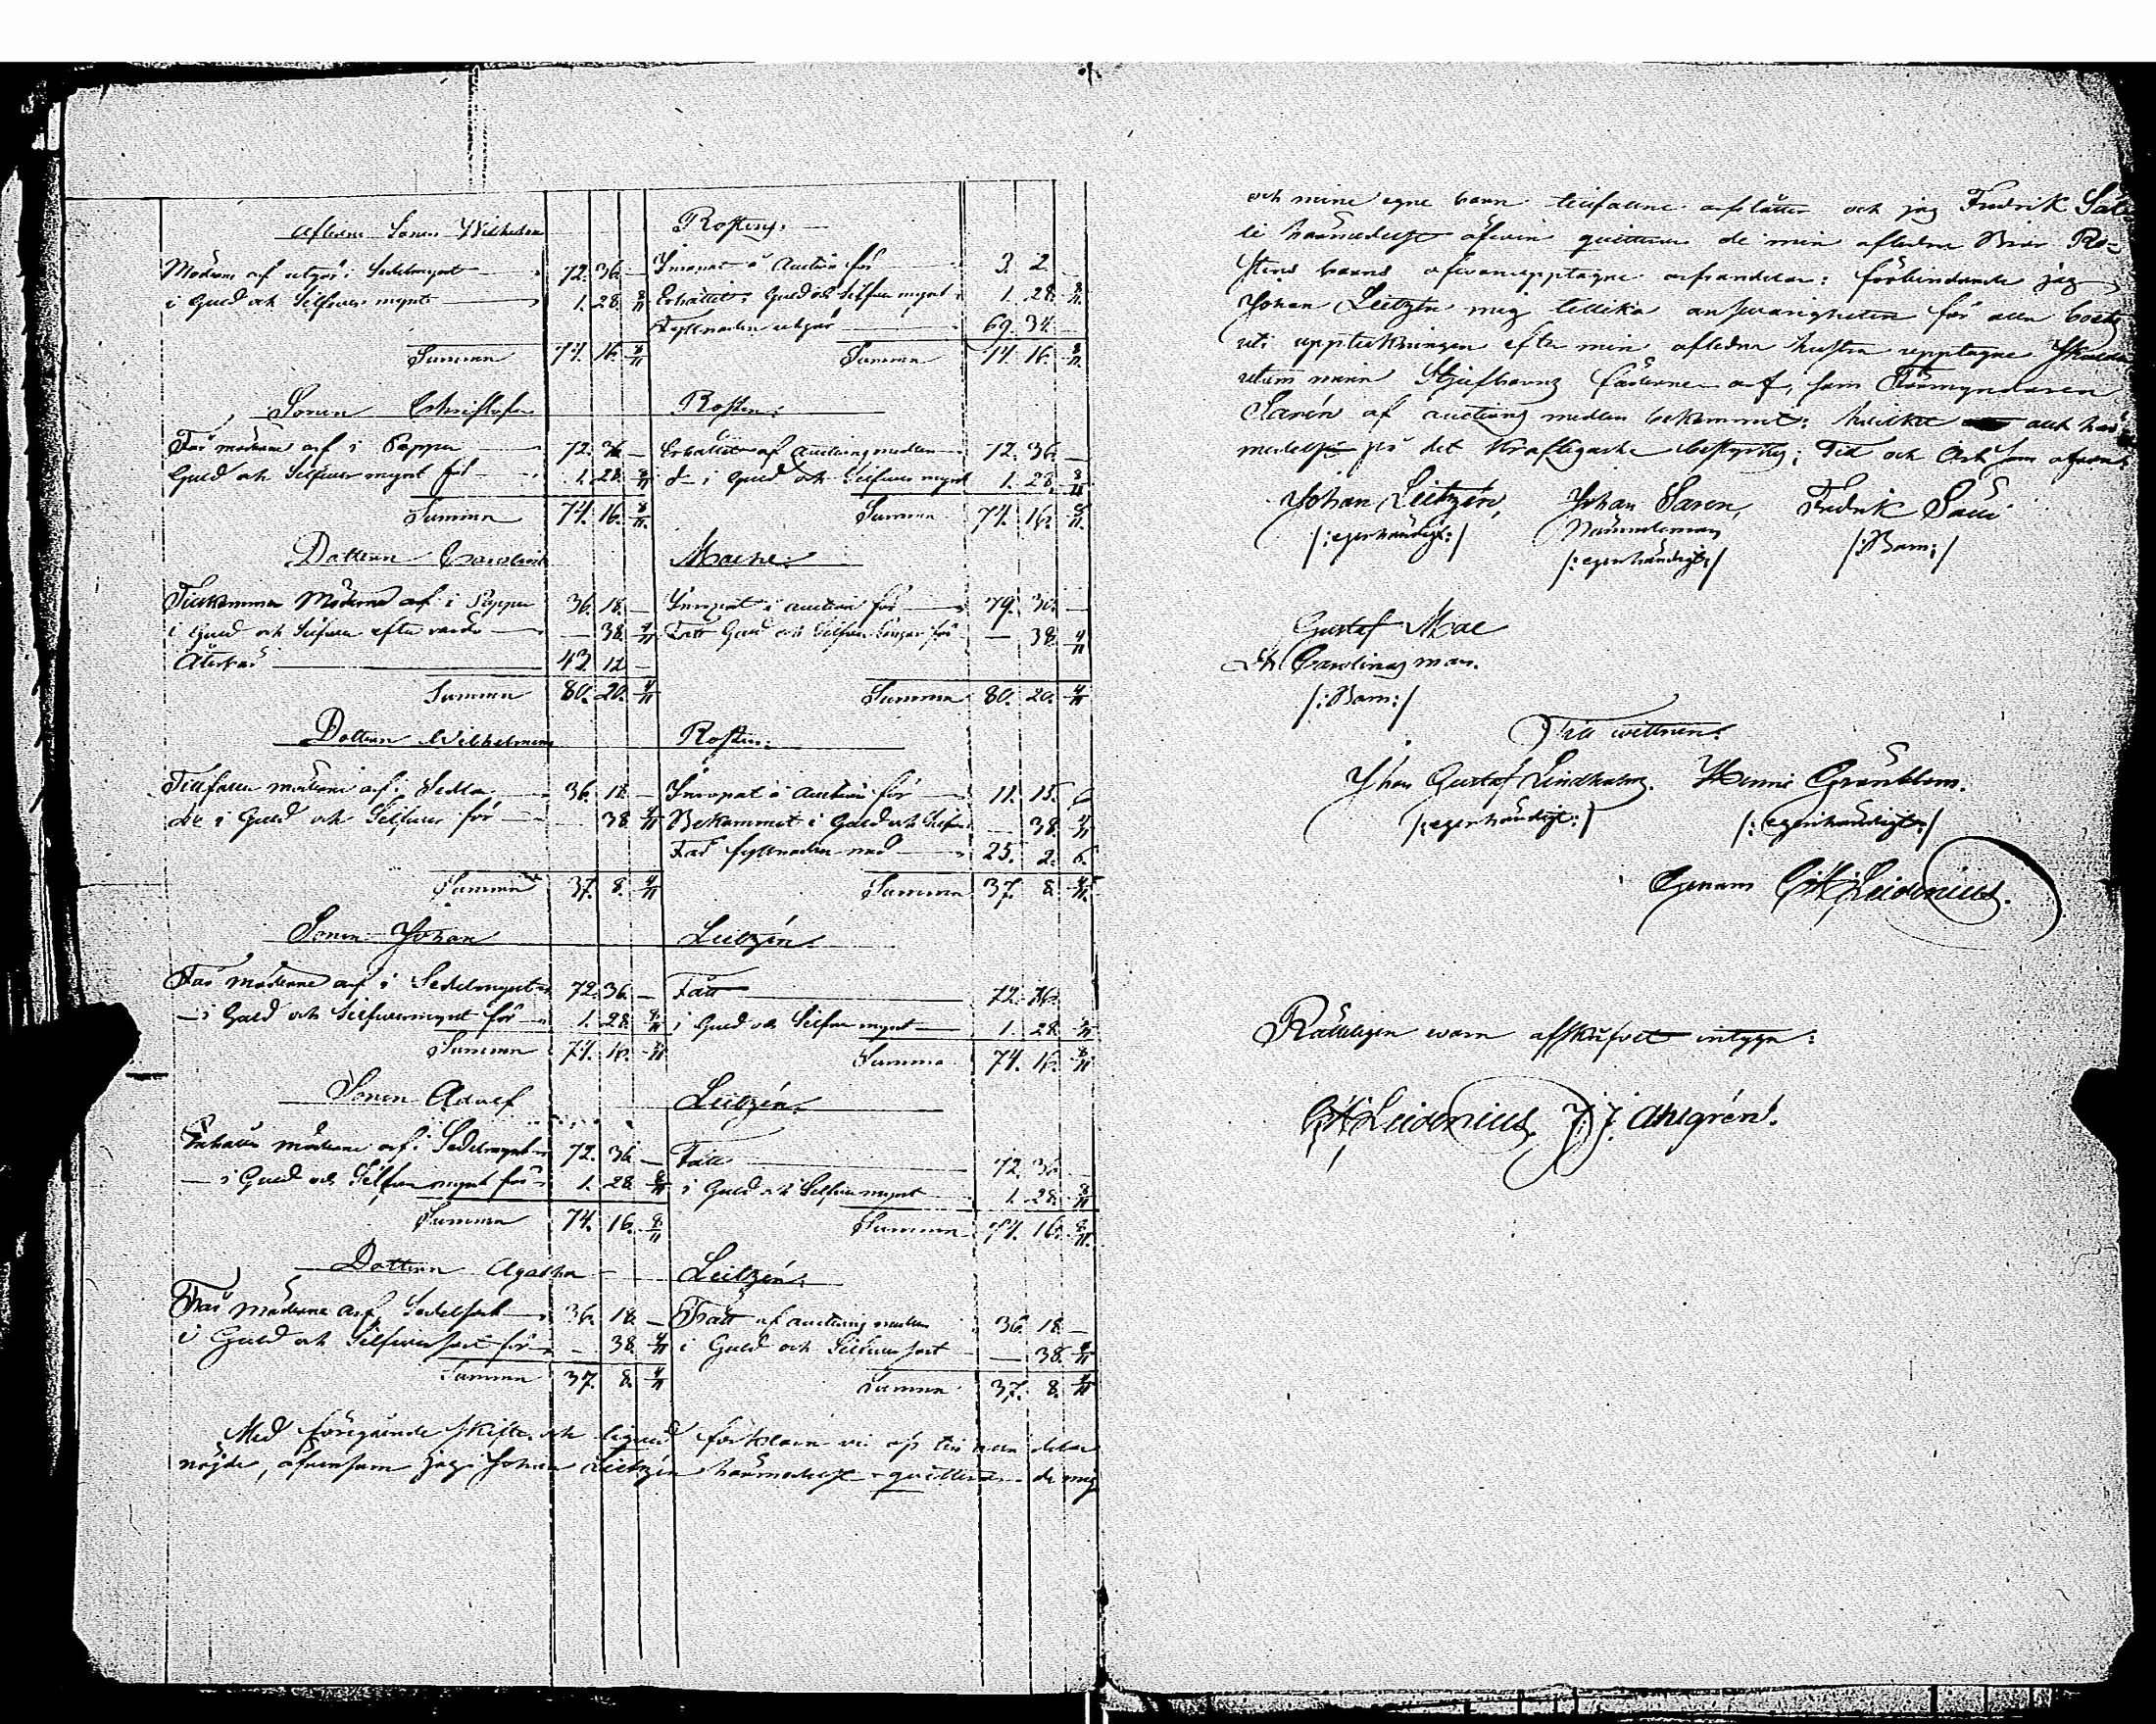 Aflidne Sonen Wilhelm Rostens.
Möderne arf utgör i Sedelmynt 72. 36. — Inropat å Auction för 3. 2. —
i Guld och Silfver mynt 1. 28. 8/11 Erhållit i Guld och Silfver mynt 1. 28. 8/11
Fyllnaden utgör 69. 34. —
Summa 74. 16. 8/11 Summa 74. 16. 8/11
Sonen Christofer Rosten.
Får möderne arf i Papper 72. 36. — Erhållit af auctions medlen 72. 36. —
Guld och Silfver mynt för 1. 28. 8/11 d:o i Guld och Silfver mynt 1. 28. 8/11
Summa 74. 16. 8/11 Summa 74. 16. 8/11
Dottern Carolina Macke.
Tillkommer Möderne arf i Papper 36. 18. — Inropat å auction för 79. 30. —
i Guld och Silfver efter värde — 38. 4/11 Fått Guld och Silfver Pengar för — 38. 4/11
Återbär 43. 12. —
Summa 80. 20. 4/11 Summa 80. 20. 4/11
Dottern Wilhelmina Rosten.
Tillfaller möderne arf i Sedlar 36. 18. — Inropat å Auction för 11. 15. 6
d:o i Guld och Silfver för — 38. 4/11 Bekommit i Guld och Silfver — 38. 4/11
Får fyllnaden med 25. 2. 6.
Summa 37. 8. 4/11 Summa 37. 8. 4/11
Sonen Johan Leitzén.
Får möderne arf i Sedelmynt 72. 36. — Fått 72. 36.
— i Guld och Silfvermynt för 1. 28. 8/11 i Guld och Silfver mynt 1. 28. 8/11
Summa 74. 16. 8/11 Summa 74. 16. 8/11
Sonen Adolf Leitzén.
Erhåller möderne arf i Sedelmynt 72. 36. — Fått 72. 36. —
— i Guld och Silfver mynt för 1. 28. 8/11 i Guld och Silfver mynt 1. 28. 8/11
Summa 74. 16. 8/11 Summa 74. 16. 8/11
Dottern Agatha Leitzén.
Får Möderne arf Sedelsort 36. 18. — Fått af auctions medlen 36. 18. —
i Guld och Silfver sort för — 38. 4/11 i Guld och Silfver sort — 38. 4/11
Summa 37. 8. 4/11 Summa 37. 8. 4/11
Med föregående skifte och liqvid förklara vi oss till alla delar
nöjde, äfvensom jag Johan Leitzén härmedelst qvitterar de mig
och mine egne barn tillfallne arfslotter och jag Fredrik
härmedelst äfven qvitterar de min aflidne Bror Ro-
stens barns ofvanupptagne arfsandelar: förbindande jag
Johan Leitzén mig tillika ansvarigheten för alla
uti uppteckningen efter min aflidna hustru upptagne
utom mina Stjufbarns fäderne arf, som Förmyndaren
Sarén af auctions medlen bekommit; hvilket allt här-
medelst på det kraftigaste bestyrkes; Tid och Ort som ofvan.
Johan Leitzén, Johan Saren, Fredrik
/:egenhändigt:/ Nämndeman /:Bom:/
/:egenhändigt:/
Gustaf Mac
Carolinas man.
/:Bom:/
Till wittnen.
Johan Gustaf Lindholm. Grönblom.
/:egenhändigt:/ /:egenhändigt:/
Genom Leidenius.
Rätteligen wara afskrifvet intyga:
Leidenius. J. J. Ahlgrén.